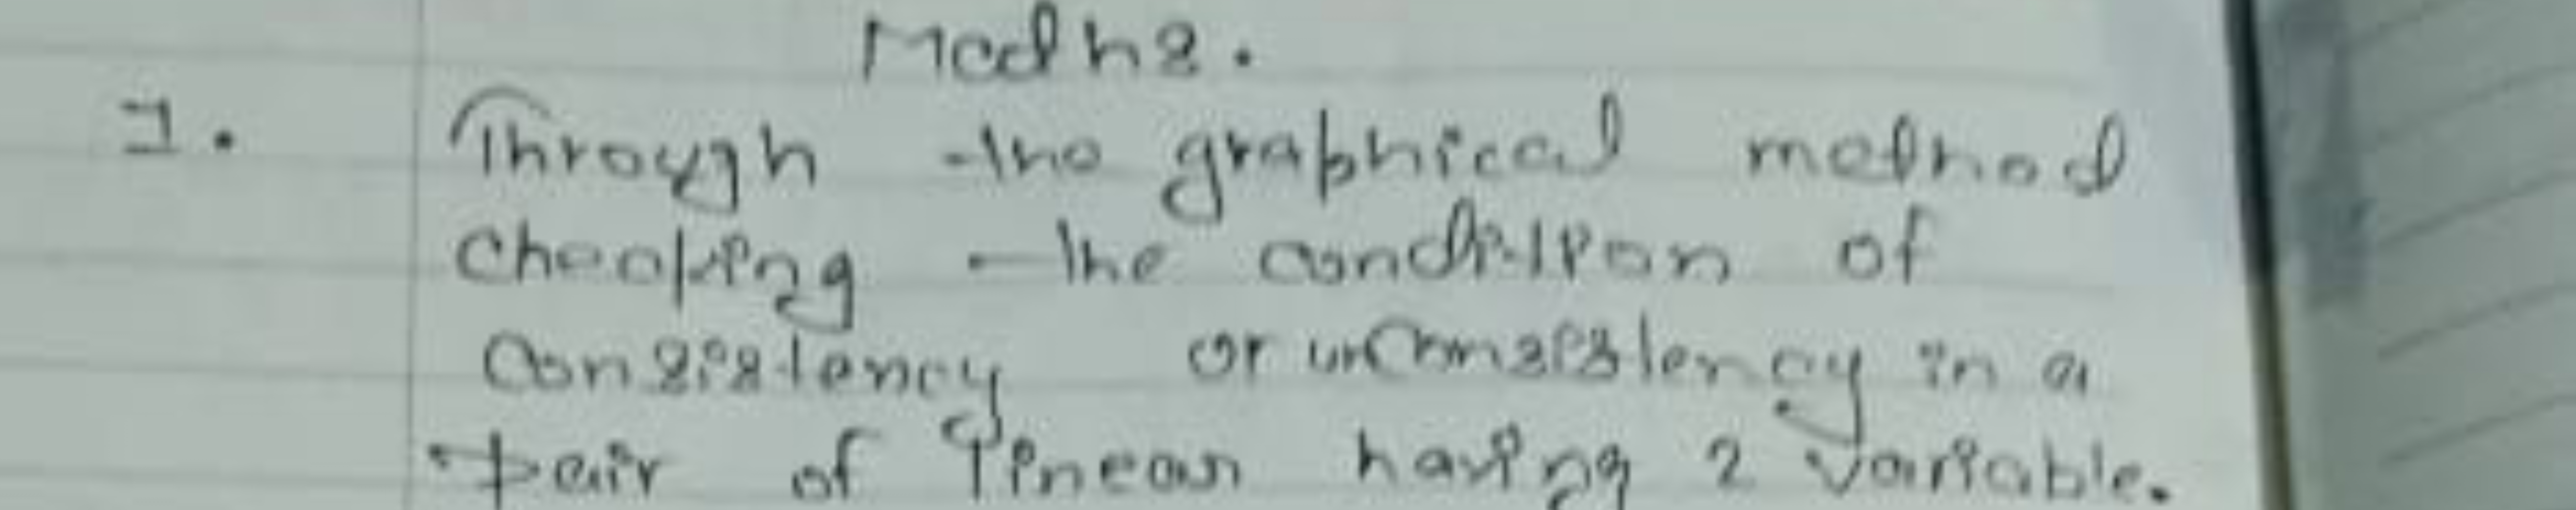 Maths.
1. Through the graphical method
checking the condition of
consistency or unconsistency in a
pair of linear having 2 variable.